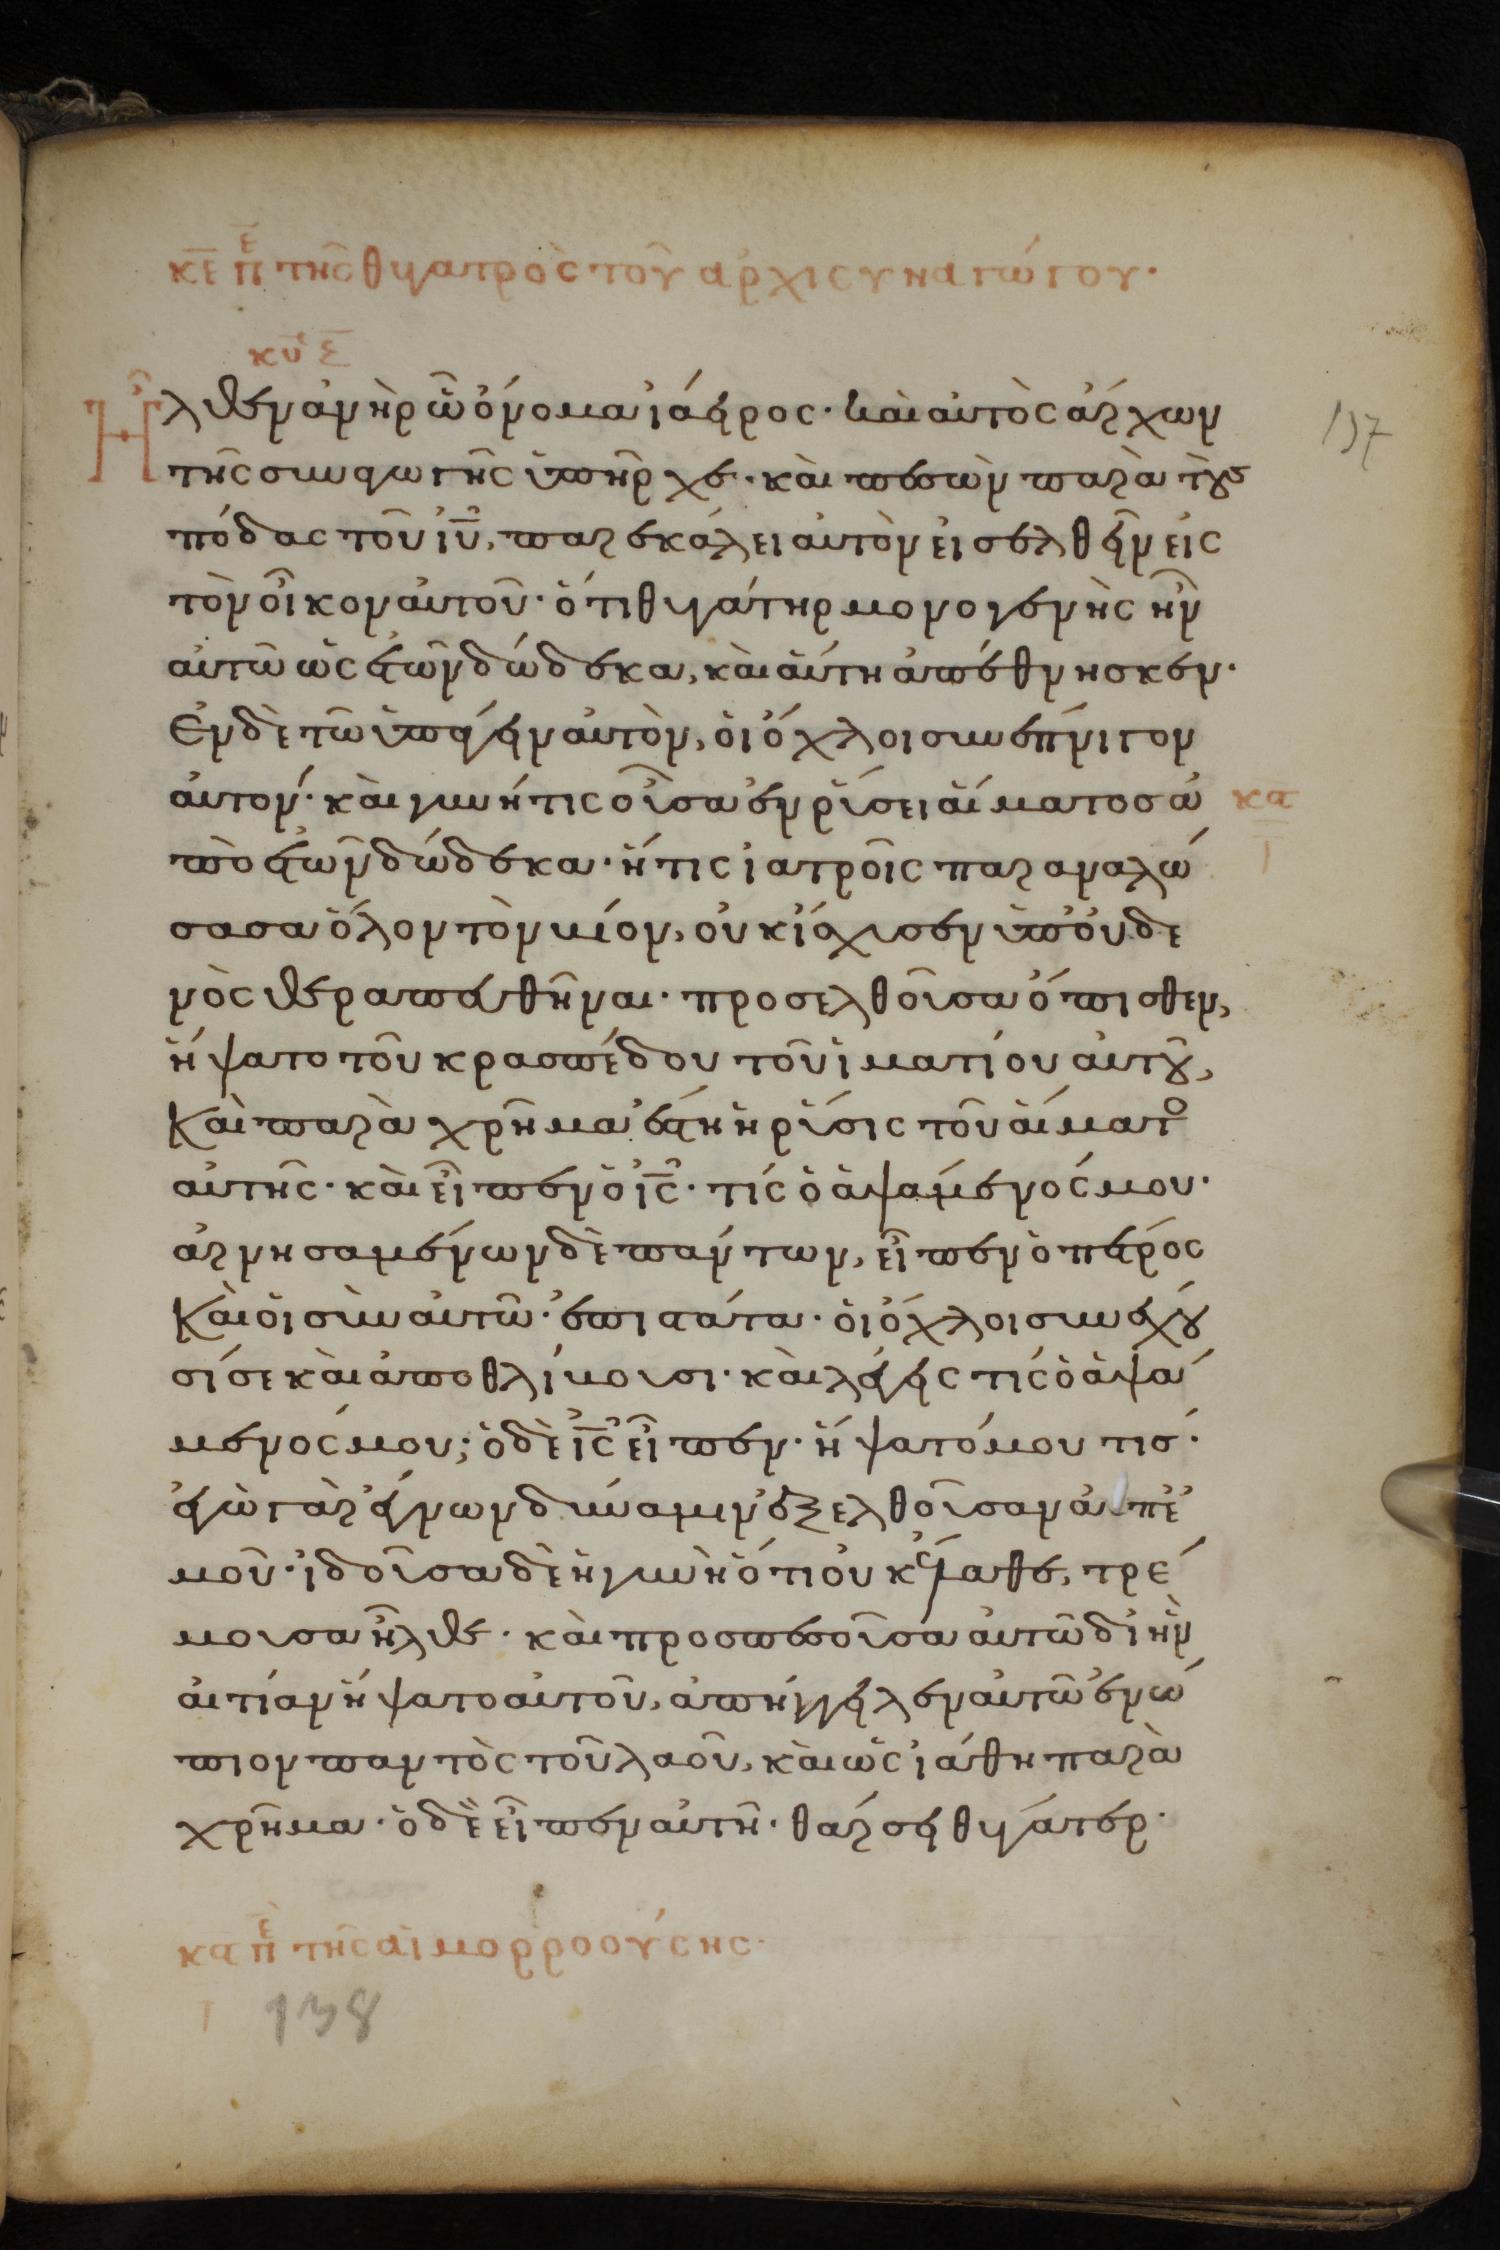 κε περ τῆς θυγατρὸς τοῦ ἀρχισυναγώγου·
κυ ϛ
Ἦλθεν ἀνὴρ ὧ ὄνομα ἰάειρος· καὶ αὐτὸς ἄρχων
τῆς συναγωγῆς ὑπῆρχε· καὶ πεσὼν παρὰ τοὺς
πόδας τοῦ ἰῦ, παρεκάλει αὐτὸν εἰσελθεῖν εἰς
τὸν οἶκον αὐτοῦ· ὅτι θυγάτηρ μονογενὴς ἦν
αὐτῶ ὡς ἐτῶν δώδεκα, καὶ αὕτη ἀπέθνησκεν·
Ἐν δὲ τῶ ὑπάγειν αὐτὸν, οἱ ὄχλοι συνέπνιγον
αὐτον· καὶ γυνή τις οὖσα ἐν ῥύσει αἵματος ἀ
πὸ ἐτῶν δώδεκα· ἥτις ἰατροῖς παραναλώ
σασα ὅλον τὸν βίον, οὐκ ἴσχυσεν ὑπ' οὐδε
νὸς θεραπευθῆναι· προσελθοῦσα ὄπισθεν,
ἥψατο τοῦ κρασπέδου τοῦ ἱματίου αὐτοῦ,
Καὶ παρὰ χρῆμα ἔστη ἡ ῥύσις τοῦ αἵματος
αὐτῆς· καὶ εἶπεν ὁ ἰς· τίς ὁ ἁψάμενός μου·
ἀρνησαμένων δὲ πάντων, εἶπεν ὁ πέτρος
Καὶ οἱ σὺν αὐτῶ· ἐπιστάτα· οἱ ὄχλοι συνέχου
σί σε καὶ ἀποθλίβουσι· καὶ λέγεις τίς ὁ ἁψά
μενός μου; ὁ δὲ ἰς εἶπεν· ἥψατό μου τισ·
ἐγὼ γὰρ ἔγνων δύναμιν ἐξελθοῦσαν ἀπ' ἐ
μοῦ· ἰδοῦσα δὲ ἡ γυνὴ ὅτι οὐκ ἔλαθε, τρέ
μουσα ἦλθε· καὶ προσπεσοῦσα αὐτῶ δι' ἣν
αἰτίαν ἥψατο αὐτοῦ, ἀπήγγειλεν αὐτῶ ἐνώ
πιον παντὸς τοῦ λαοῦ, καὶ ὡς ἰάθη παρὰ
χρῆμα· ὁ δὲ εἶπεν αὐτῆ· θάρσει θύγατερ·
κα
137
κα περ τῆς αἱμορροούσης·
138